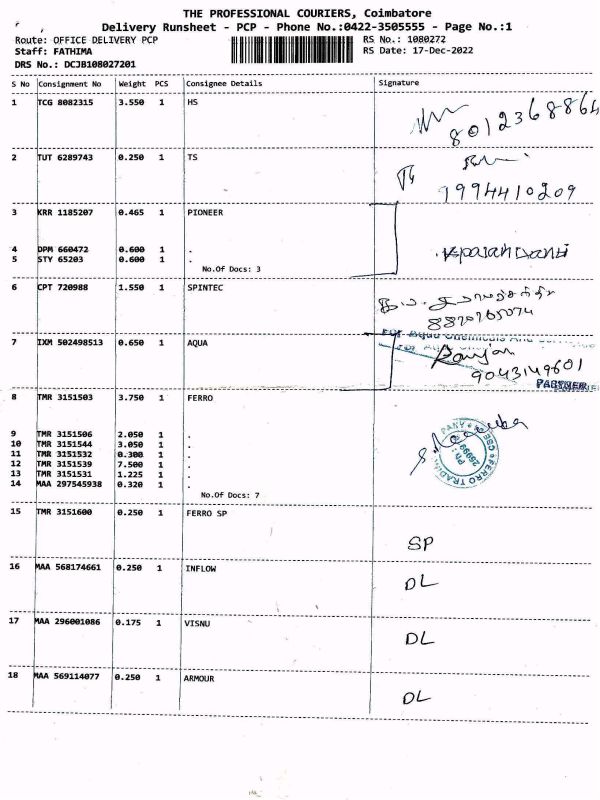 THE PROFESSIONAL COURIERS, Coimbatore
Delivery Runsheet - PCP - Phone No.:0422-3505555 - Page No.:1
Route: OFFICE DELIVERY PCP RS No.: 1080272
Staff: FATHIMA RS Date: 17-Dec-2022
DRS No.: DCJB108027201
S No Consignment No Weight PCS Consignee Details Signature
1 TCG 8082315 3.550 1 HS
8012368864
2 TUT 6289743 0.250 1 TS
9994410209
3 KRR 1185207 0.465 1 PIONEER
4 DPM 660472 0.600 1 .
5 STY 65203 0.600 1 .
No.Of Docs: 3
6 CPT 720988 1.550 1 SPINTEC
8870765074
7 IXM 502498513 0.650 1 AQUA
For Aqua Chemicals And
Ranjan
9043149601
PARTNER
8 TMR 3151503 3.750 1 FERRO
9 TMR 3151506 2.050 1 .
10 TMR 3151544 3.050 1 .
11 TMR 3151532 0.300 1 .
12 TMR 3151539 7.500 1 .
13 TMR 3151531 1.225 1 .
14 MAA 297545938 0.320 1 .
No.Of Docs: 7
15 TMR 3151600 0.250 1 FERRO SP
SP
16 MAA 568174661 0.250 1 INFLOW
DL
17 MAA 296001086 0.175 1 VISNU
DL
18 MAA 569114077 0.250 1 ARMOUR
DL